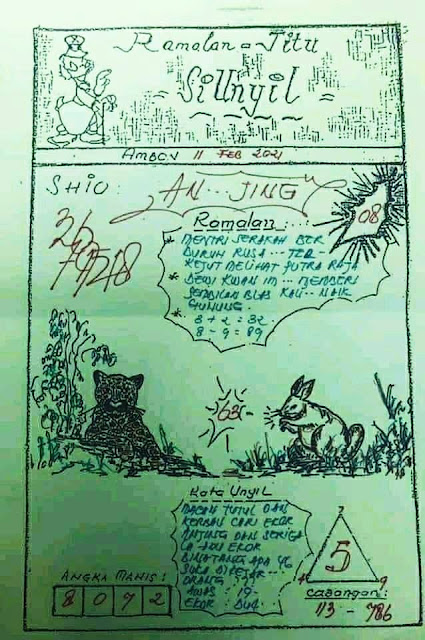 Ramalan = Jitu
Si Unyil
AMBON 11 FEB 2021
SHIO : AN...JING
08
Ramalan : ..
* MENTRI SERAKAH BER
BURUH RUSA ... TER
KEJUT MELIHAT PUTRA RAJA
* DEWI KWAN IM ... MEMBERI
SEMBILAN BLAS KALI .. NAIK
GUNUNG.
* 8 + 2 = 32
8 - 9 = 89
63
Kata Unyil
MACAN TUTUL DAN
KERBAU CARI EKOR
ANJING DAN SERIGA
LA JADI EKOR
BINATANG APA YG
SUKA
ORANG
AWAS : 19 -
EKOR : DUA
ANGKA MANIS :
8 0 7 2
7
5
4 9
Cabangan :
113 - 786